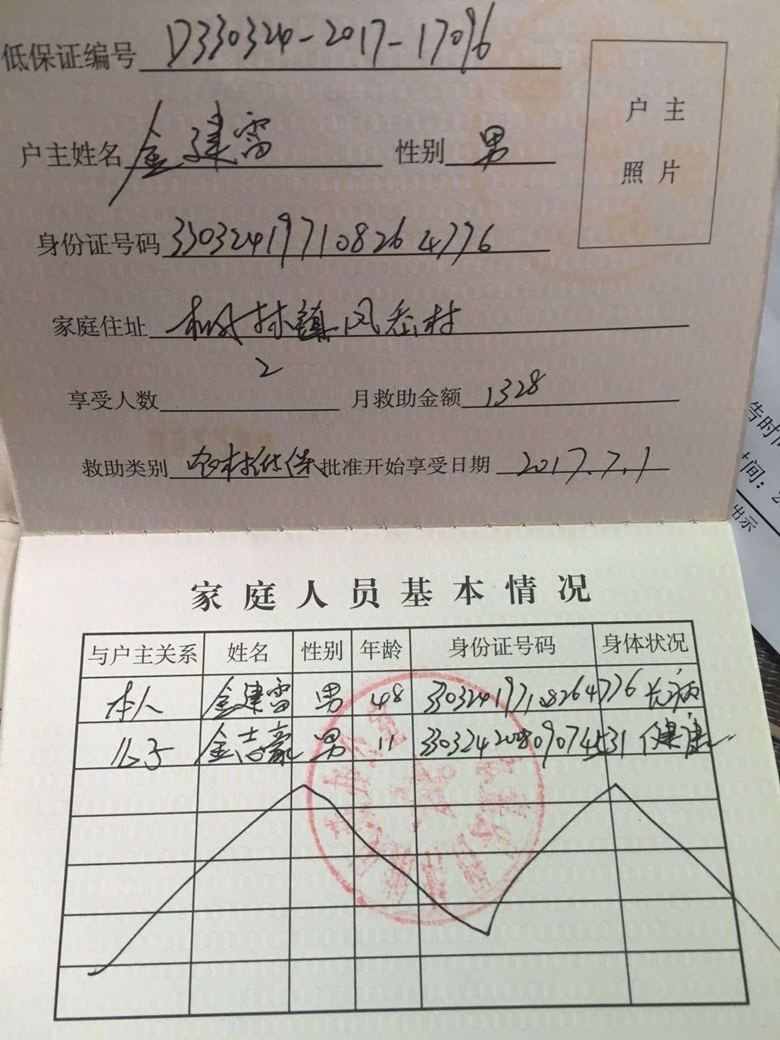 低保证编号 D330324-2017-17096
户主姓名 金建雷 性别 男
户主
照片
身份证号码 330324197108264776
家庭住址 枫林镇凤岙村
享受人数 2 月救助金额 1328
救助类别 农村低保 批准开始享受日期 2017.7.1
告时
时间：2
出示
家庭人员基本情况
与户主关系 姓名 性别 年龄 身份证号码 身体状况
本人 金建雷 男 48 330324197108264776 长病
儿子 金志豪 男 11 健康